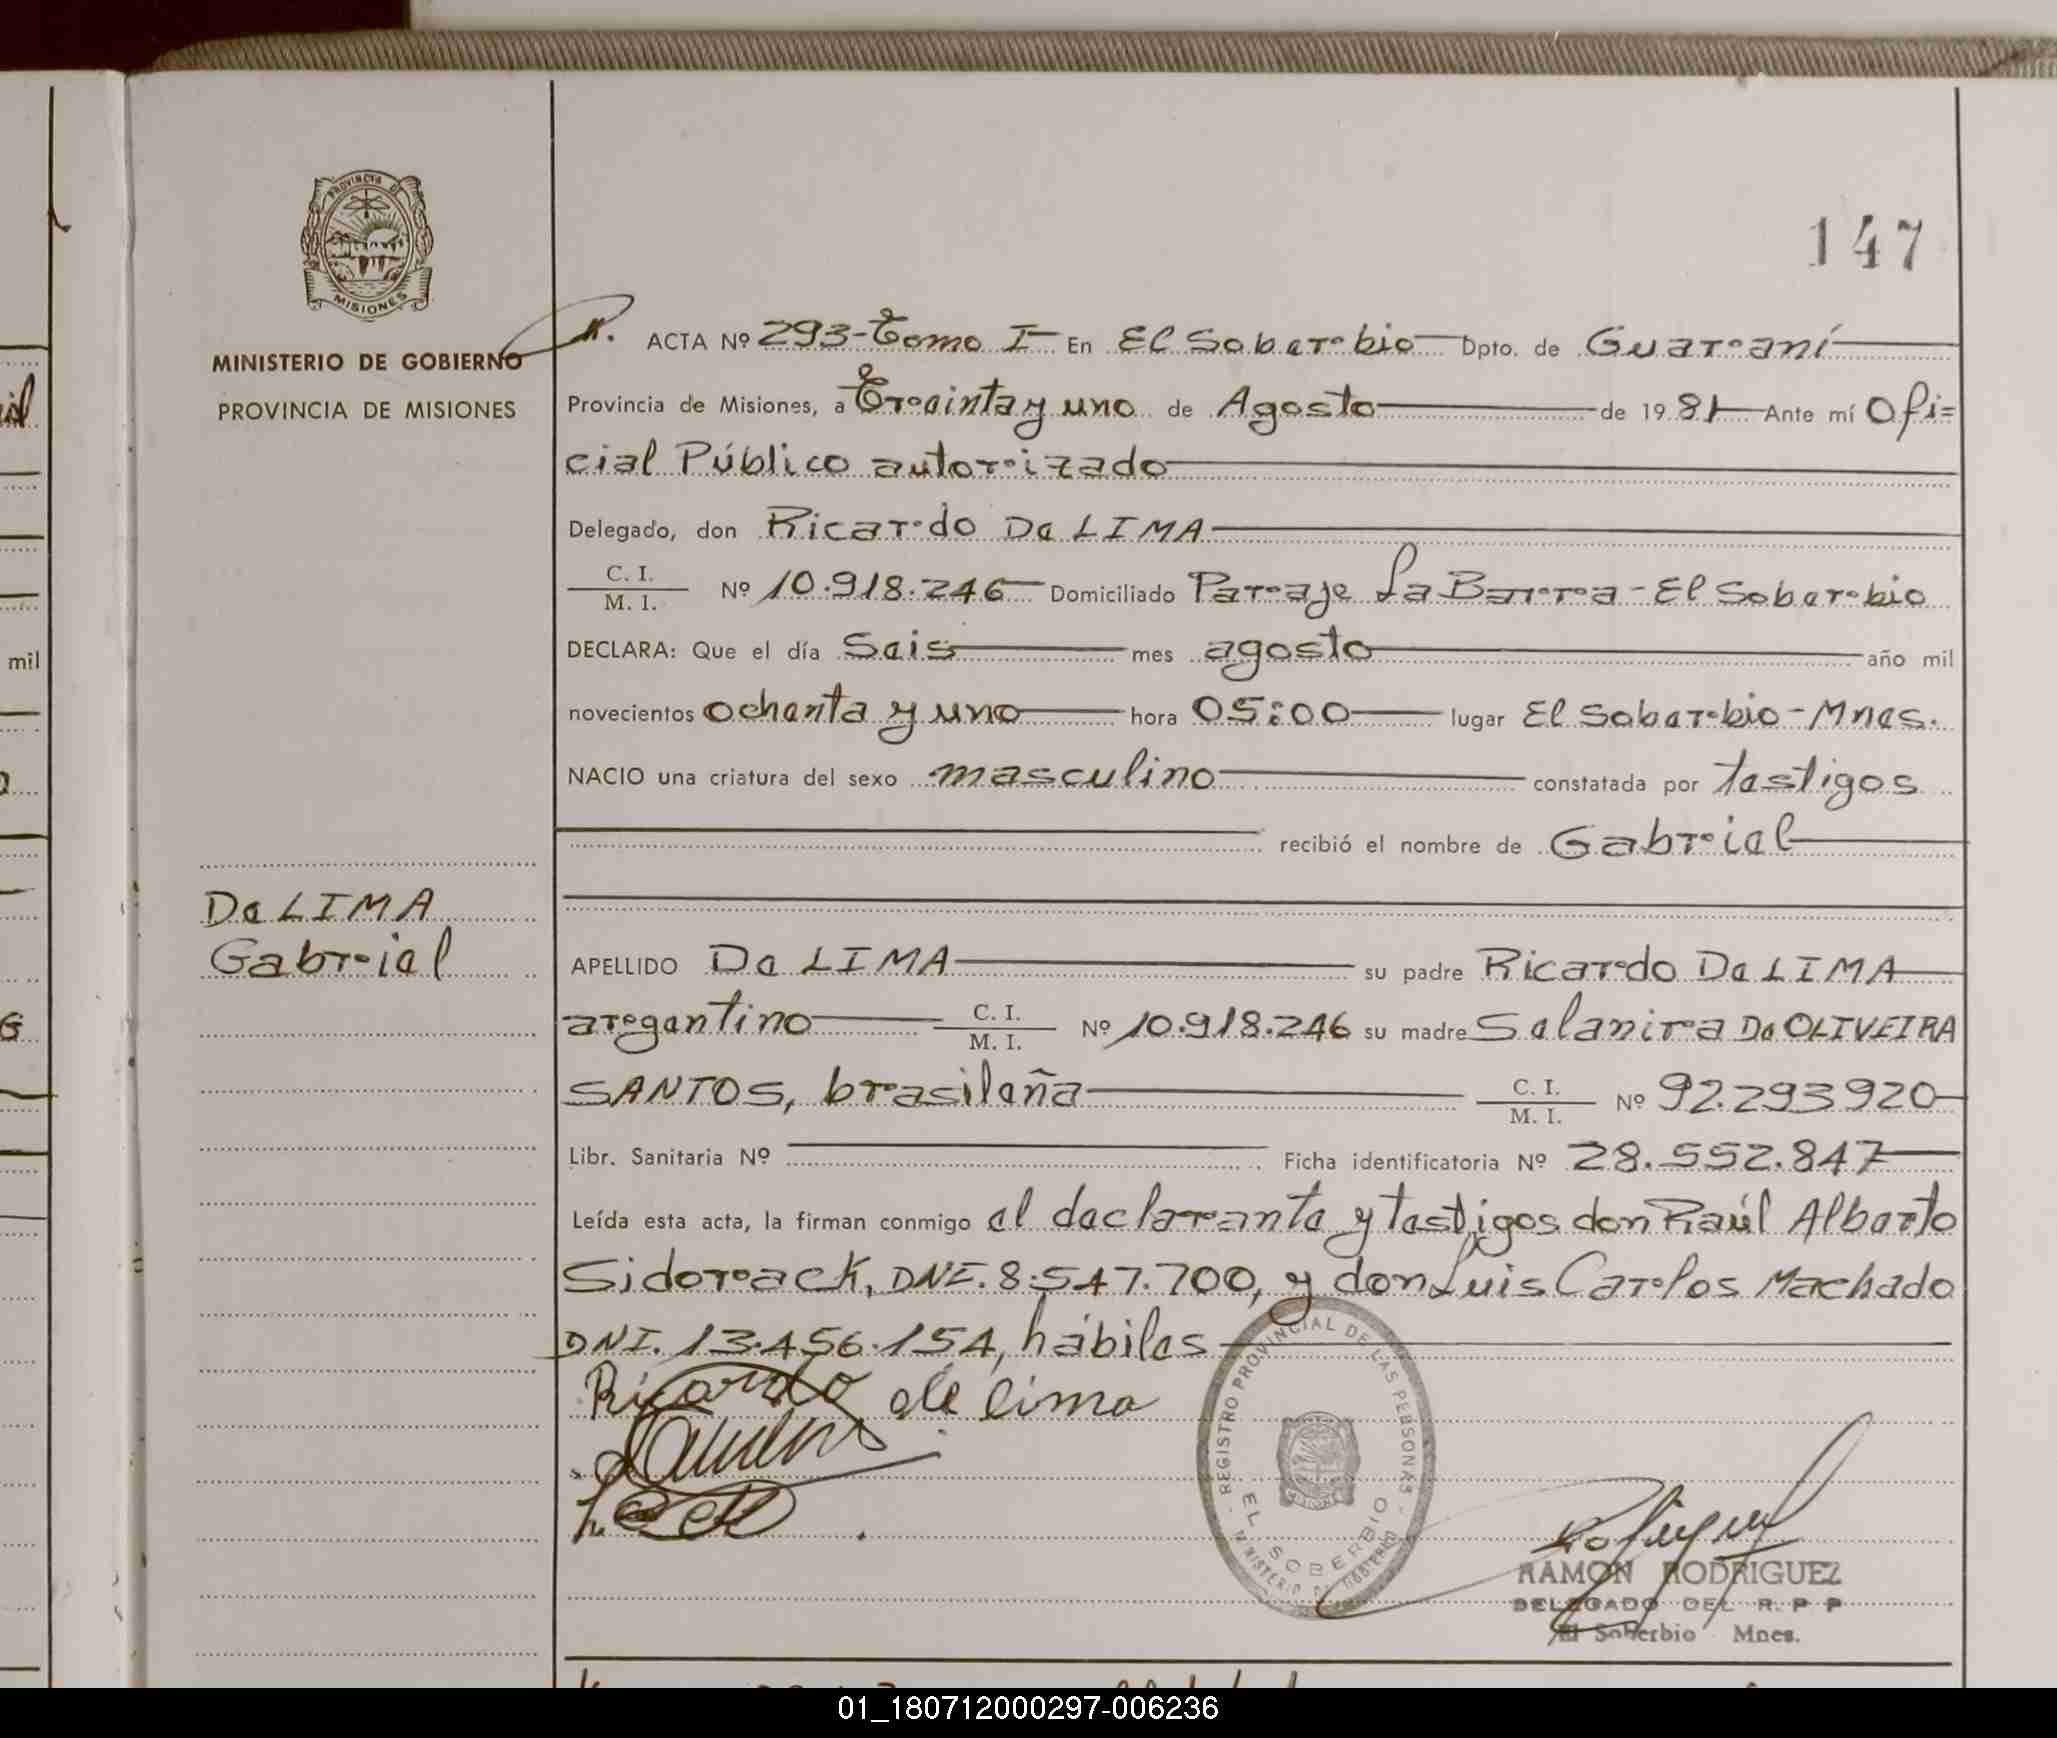 147
PROVINCIA DE
MISIONES
MINISTERIO DE GOBIERNO
PROVINCIA DE MISIONES
ACTA Nº 293-Tomo I- En El Soberbio Dpto. de Guaraní
Provincia de Misiones, a Treinta y uno de Agosto de 1981 Ante mí Ofi=
cial Público autorizado
Delegado, don Ricardo De LIMA
C. I.
M. I. Nº 10.918.246 Domiciliado Paraje La Barra - El Soberbio
DECLARA: Que el día Seis mes agosto año mil
novecientos ochenta y uno hora 05:00 lugar El Soberbio - Mnes.
NACIO una criatura del sexo masculino constatada por testigos
recibió el nombre de Gabriel
De LIMA
Gabriel
APELLIDO De LIMA su padre Ricardo De LIMA
argentino C. I.
M. I. Nº 10.918.246 su madre Selanira De OLIVEIRA
SANTOS, brasileña C. I.
M. I. Nº 92.293920
Libr. Sanitaria Nº Ficha identificatoria Nº 28.552.847
Leída esta acta, la firman conmigo el declarante y testigos don Raúl Alberto
Sidoreack, DNI. 8.547.700, y don Luis Carlos Machado
DNI. 13.456.154, hábiles
Ricardo de lima
REGISTRO PROVINCIAL DE LAS PERSONAS
EL SOBERBIO
MINISTERIO DE GOBIERNO
RAMON RODRIGUEZ
DELEGADO DEL R. P P
El Soberbio Mnes.
mil
01_180712000297-006236